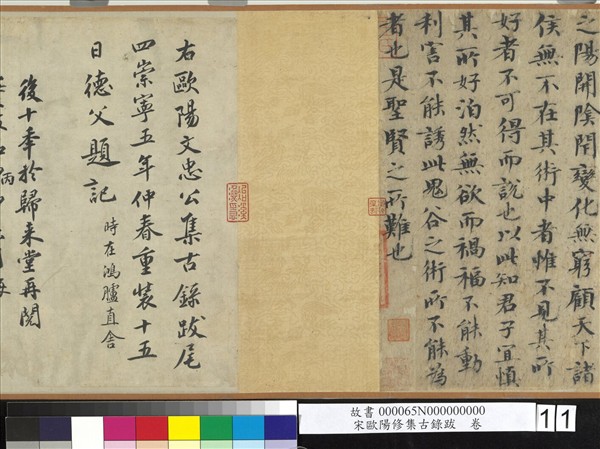 之陽開陰閉變化無窮顧天下諸
侯無不在其術中者惟不見其所
好者不可得而說也以此知君子宜慎
其所好泊然無欲而禍福不能動
利害不能誘此鬼谷之術所不能為
者也是聖賢之所難也
右歐陽文忠公集古錄跋尾
四崇寧五年仲春重裝十五
日德父題記
時在鴻臚直舍
後十年於歸来堂再閱
故書 000065N000000000
宋歐陽修集古錄跋 卷
11